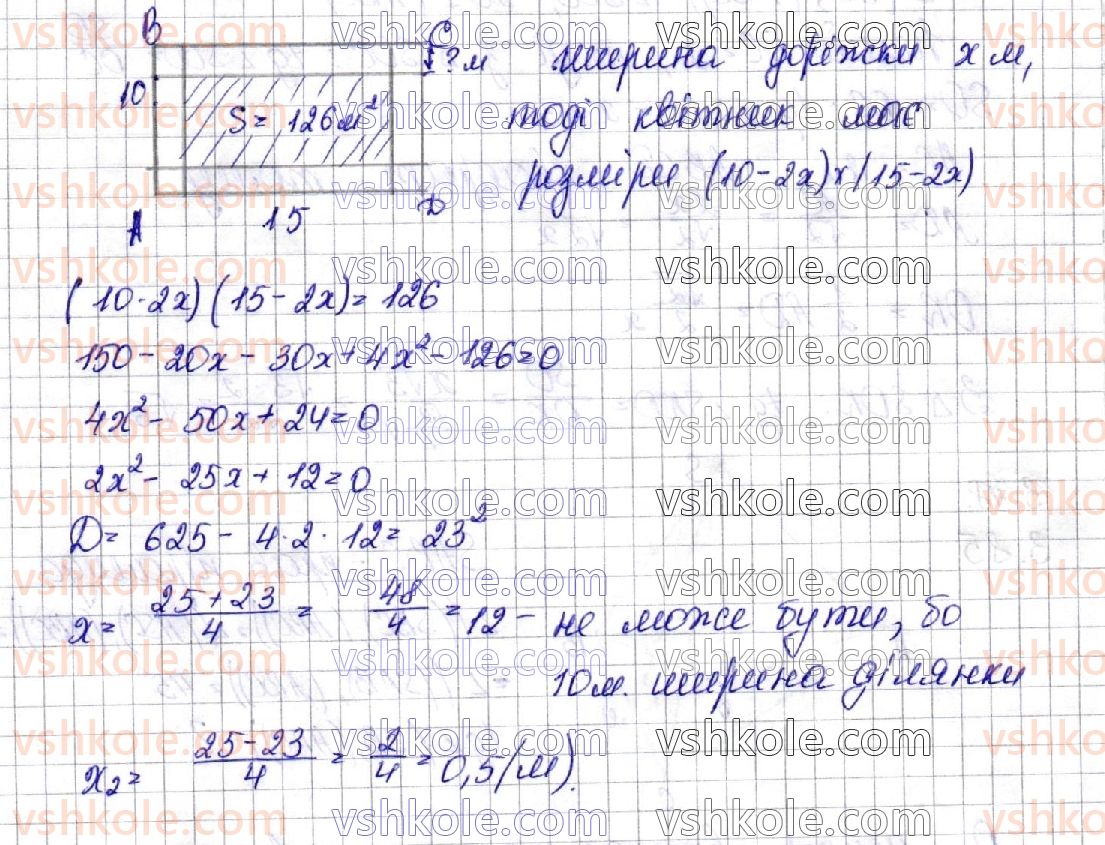 B C
? м
10
S = 126 м²
A 15 D
ширина доріжки х м,
тоді квітник має
розміри (10-2x)x(15-2x)
(10·2x)(15-2x)=126
150-20x-30x+4x²-126=0
4x²-50x+24=0
2x²-25x+12=0
D= 625-4·2·12=23²
x= 25+23/4 = 48/4 =12- не може бути, бо
10м. ширина ділянки
x₂= 25-23/4 = 2/4 = 0,5(м).
vshkole.com